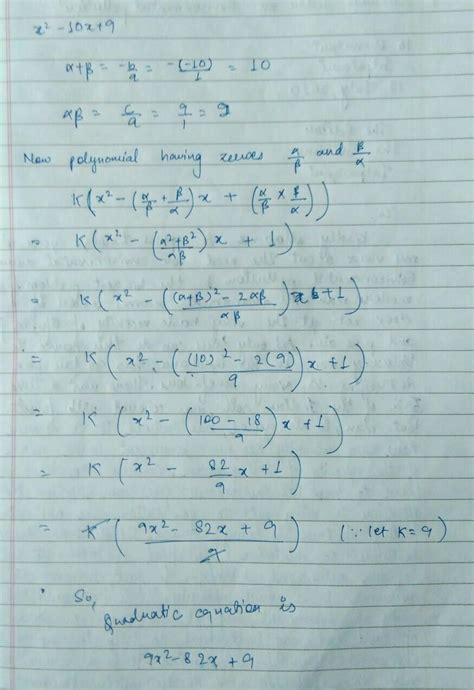 x² - 10x+9
α+β = -b/a = -(-10)/1 = 10
αβ = c/a = 9/1 = 9
Now polynomial having zeroes α/β and β/α
K(x² - (α/β + β/α)x + (α/β × β/α))
= K(x² - (α²+β²/αβ)x + 1)
= K(x² - ((α+β)² - 2αβ/αβ)x + 1)
= K(x² - ((10)² - 2(9)/9)x + 1)
= K(x² - (100 - 18/9)x + 1)
= K(x² - 82/9 x + 1)
= K(9x² - 82x + 9/9) (∵ let K = 9)
So,
Quadratic equation is
9x² - 82x + 9